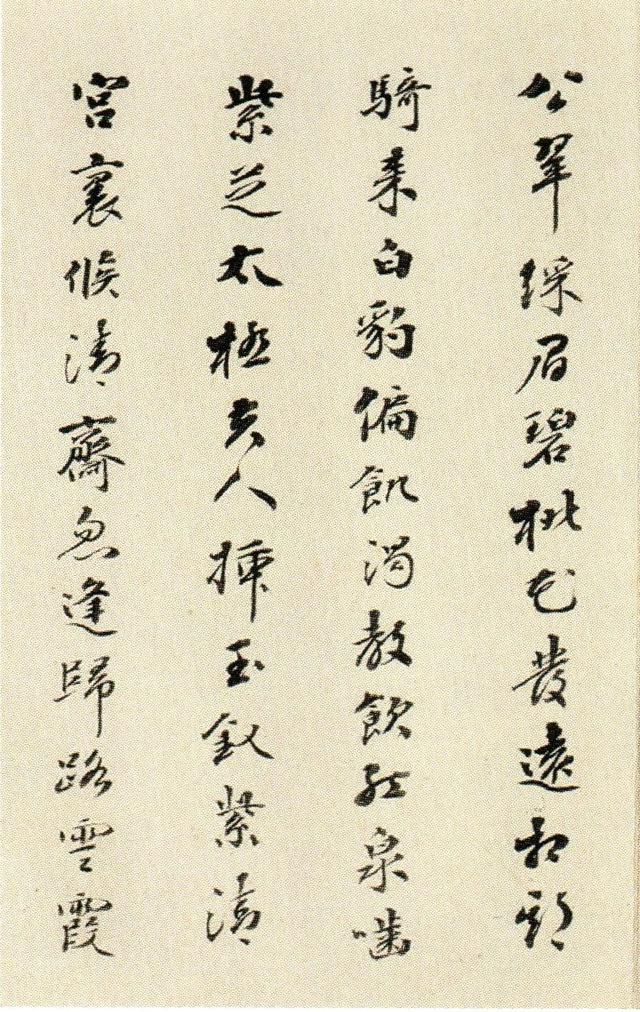 公翠綵眉碧桃花發遠相期
騎来白豹偏飢渴教飲泉嚙
紫芝太極夫人插玉釵紫清
宮裏候清齋忽逢歸路雲霞